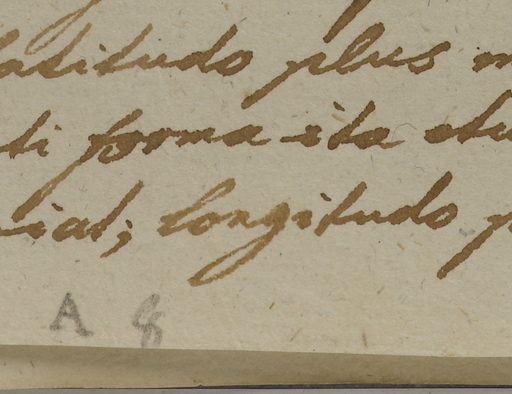 latitudo plus m
ti forma ita stu
niat; longitudo p
A 8